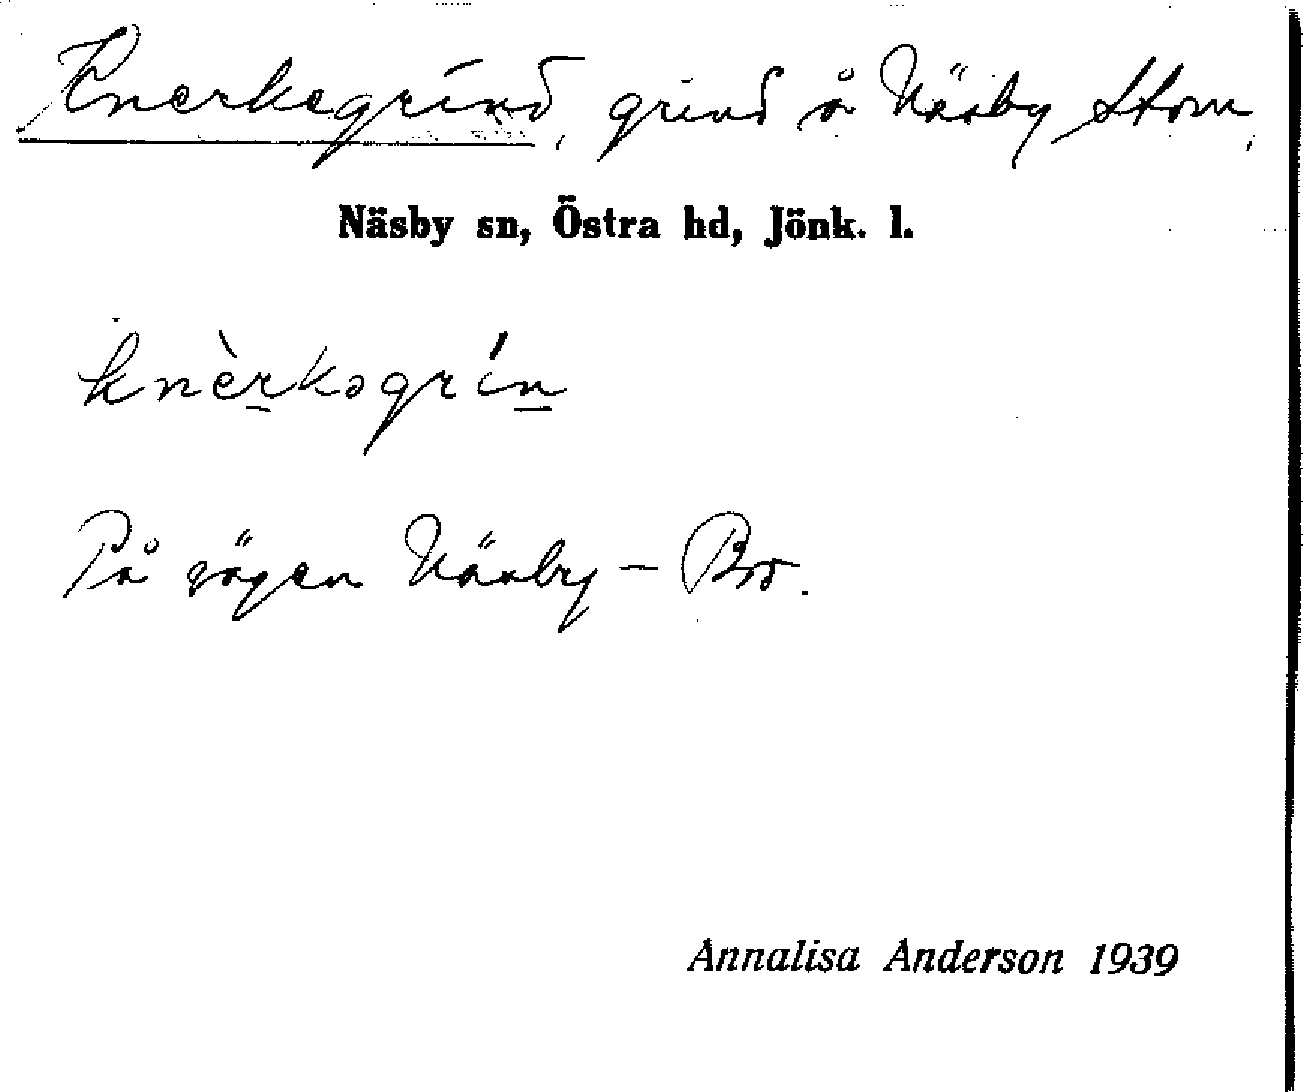 Knerkegrind, grind å Näsby Stom,
Näsby sn, Östra hd, Jönk. l.
knèrkəgrín
På vägen Näsby – Bro.
Annalisa Anderson 1939